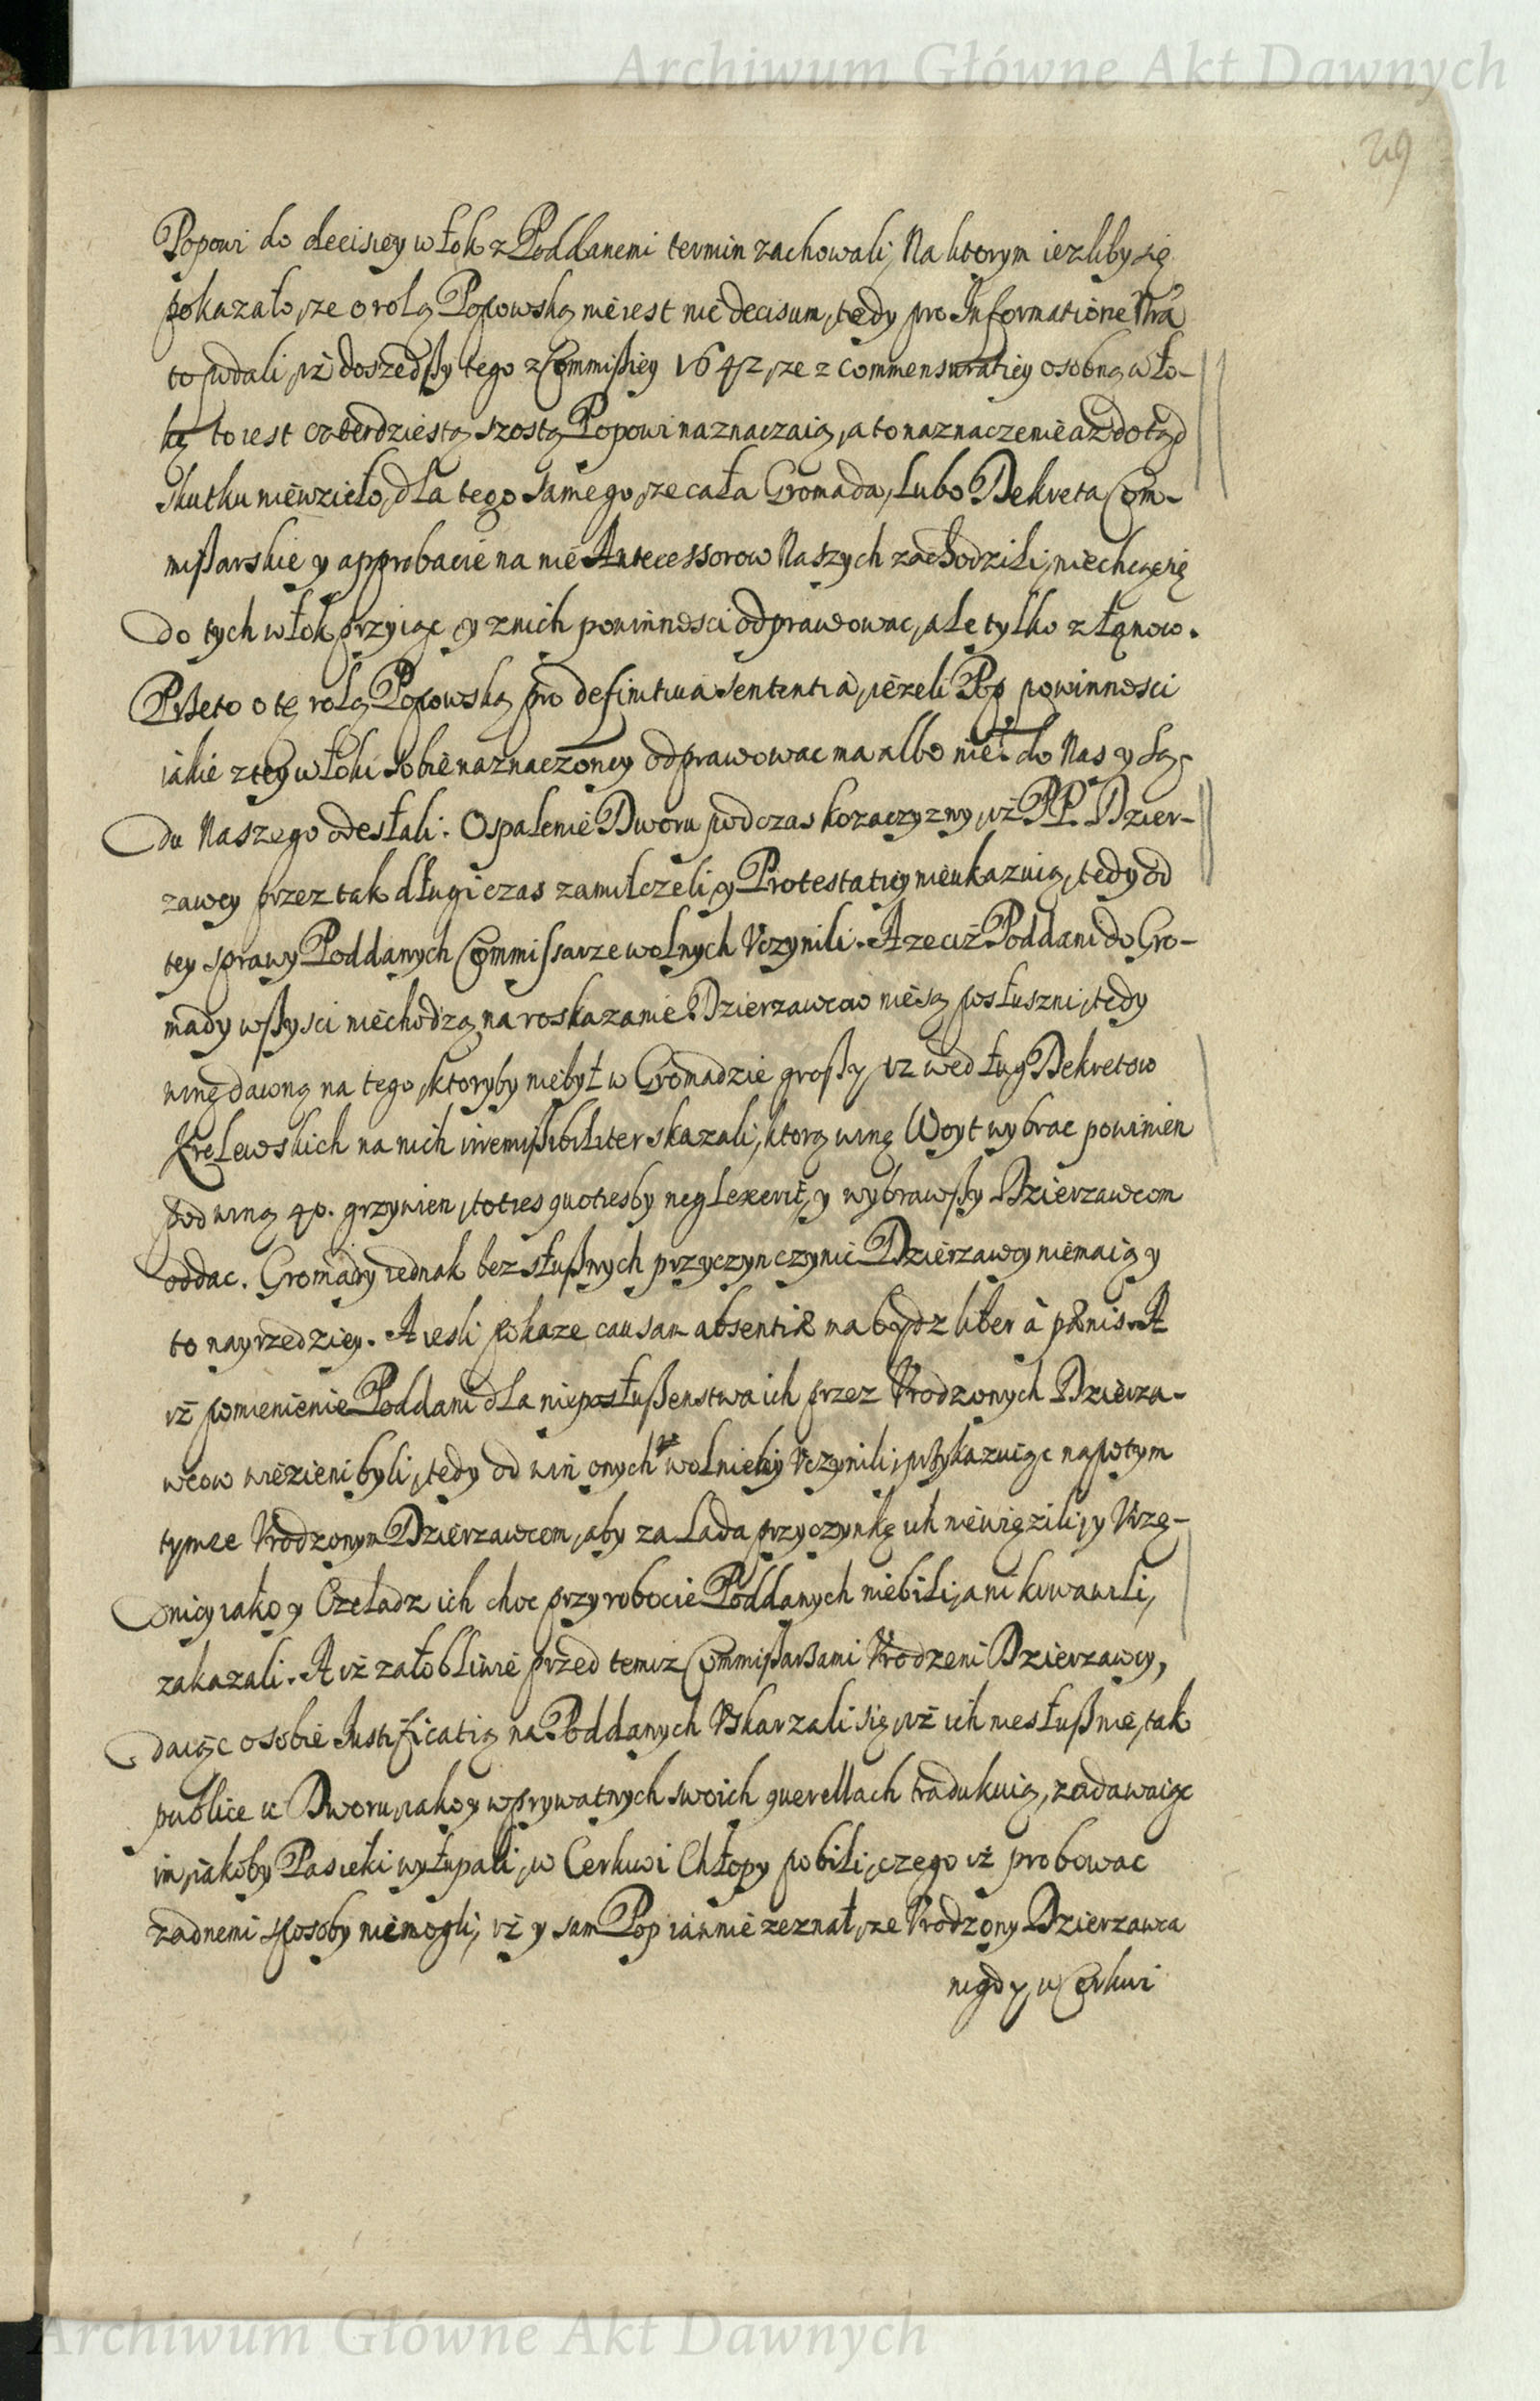 Archiwum Główne Akt Dawnych
29
Popowi do decisiey włok z Poddanemi termin zachowali, Na ktorym iezliby się
pokazało, że o rolą Popowską nie iest nic decisum, tedy pro Informatione Nra
to podali, iż doszedszy tego z Commissiey 1642, że z Commensuratiey osobną wło-
kę to iest czterdziestą szostą Popowi naznaczaią, a to naznaczenie aż dotąd
skutku niewzieło, dla tego samego, że cała Gromada, lubo Dekreta Com-
mißarskie y approbacie na nie Antecessorow Naszych zachodzili, niechcą się
do tych włok przyiąc, y z nich powinnosci odprawowac, ale tylko z łanow.
Przeto o tę rolą Popowską pro definitiua sententia, ieżeli Pop powinnosci
iakie z tey włoki sobie naznaczoney odprawowac ma albo nie? do Nas y Są-
du Naszego odesłali. O spalenie Dworu podczas kozaczyzny, iż PP. Dzier-
zawcy przez tak długi czas zamilczeli, y Protestatiey nieukazuią, tedy od
tey sprawy Poddanych Commissarze wolnych Vczynili. A że ciż Poddani do Gro-
mady wßysci niechodzą, na roskazanie Dzierzawcow nie są posłuszni, tedy
winę dawną na tego, ktoryby niebył w Gromadzie großy 12 według Dekretow
Krolewskich na nich irremißibiliter skazali, ktorą winę Woyt wybrac powinien
pod winą 40. grzywien, toties quotiesby neglexerit, y wybrawßy Dzierzawcom
oddac. Gromady iednak bez słußnych przyczyn czynic Dzierzawcy niemaią y
to nayrzedziey. A iesli pokaze causam absentiæ ma bydz liber à pænis. A
iż pomienienie Poddani dla nieposłußenstwa ich przez Vrodzonych Dzierza-
wcow wiezieni byli, tedy od win onych wolnieby Vczynili, przykazuiąc napotym
tymze Vrodzonym Dzierzawcom, aby za lada przyczynkę ich niewięzili, y Vrzę-
nicy iako y Czeladz ich choc przy robocie Poddanych niebili, ani krwawili,
zakazali. A iż załobliwie przed temiz Commißarzami Vrodzeni Dzierzawcy,
daiąc o sobie Iustificatią na Poddanych Vskarzali się, iż ich niesłußnie, tak
publice u Dworu, iako y w prywatnych swoich querellach tradukuią, zadawaiąc
im, iakoby Pasieki wyłupali, w Cerkwi Chłopy pobili, czego iż probowac
żadnemi sposoby niemogli, iż y sam Pop iawnie zeznał, że Vrodzony Dzierzawca
nigdy w Cerkwi
Archiwum Główne Akt Dawnych